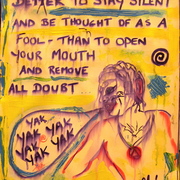 BETTER TO STAY SILENT
AND BE THOUGHT OF AS A
FOOL - THAN TO OPEN
YOUR MOUTH
AND REMOVE
ALL DOUBT...
YAK
YAK YAK
YAK YAK
YAK